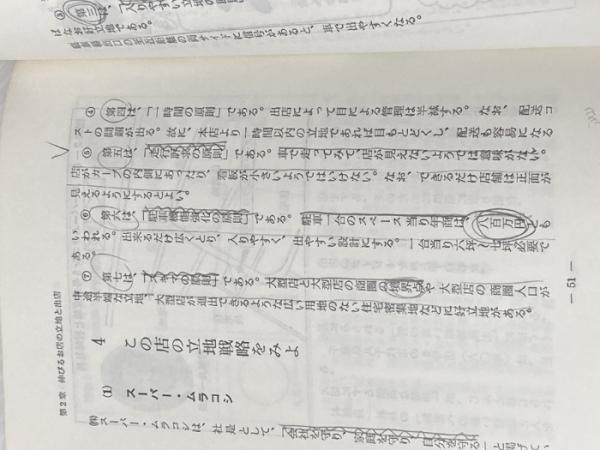 ③ 第三は、「入りやすい立地の原則」
はなお好立地である。
④ 第四は、「一時間の原則」である。出店によって目による管理は半減する。なお、配送コ
ストの問題が出る。故に、本店より一時間以内の立地であれば目もとどくし、配送も容易になる
⑤ 第五は、「走行訴求の原則」である。車で走ってみて、店が見えないようでは意味がない。
店がカーブの内側にあったり、看板が小さいようではいけない。なお、できるだけ店舗は正面が
見えるようにするとよい。
⑥ 第六は、「駐車機能強化の原則」である。駐車一台のスペース当り年商は、八百万円とも
いわれる。出来るだけ広くとり、入りやすく、出やすい設計にする。一台当り六坪~七坪必要で
ある。
⑦ 第七は、「スキマの原則」である。大型店と大型店の商圏の境界点や大型店の商圏人口が
中途半端な立地、大型店が進出できるような広い用地のない住宅密集地などに好立地がある。
4 この店の立地戦略をみよ
(1) スーパー・ムラコシ
㈱スーパー・ムラコシは、社是として、「会社を守り、家庭を守り、自分を守る」と掲げて、
第2章 伸びるお店の立地と出店
— 51 —